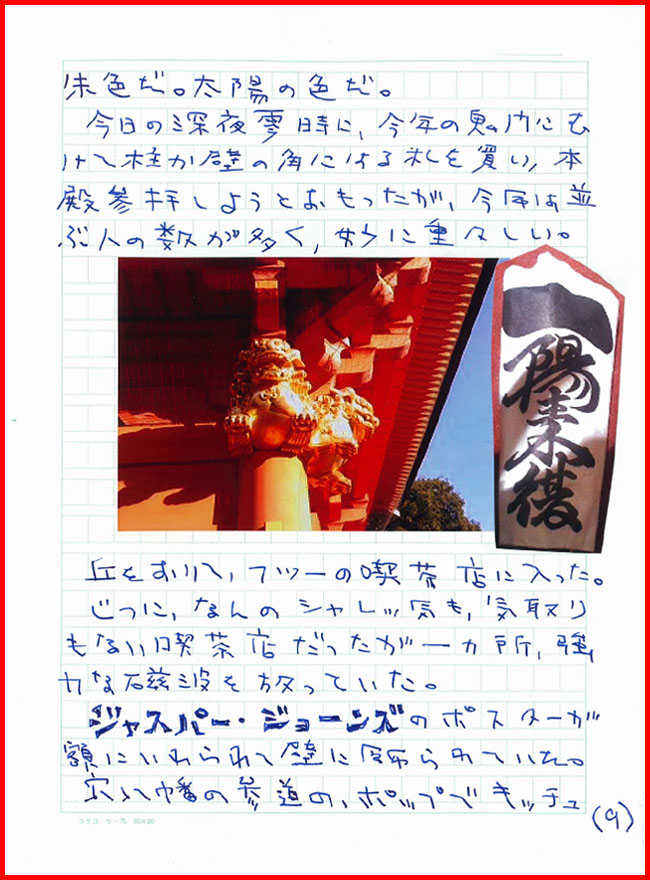 朱色だ。太陽の色だ。
今日の深夜零時に、今年の鬼門にむ
けて柱か壁の角にはる札を買い、本
殿参拝しようとおもったが、今年は並
ぶ人の数が多く、妙に重々しい。
一陽来復
丘をおりて、フツーの喫茶店に入った。
じつに、なんのシャレッ気も、気取り
もない喫茶店だったが一カ所、強
力な磁波を放っていた。
ジャスパー・ジョーンズのポスターが
額にいれられて壁に飾られていた。
穴八幡の参道の、ポップでキッチュ
(9)
コクヨ ケー75 20×20